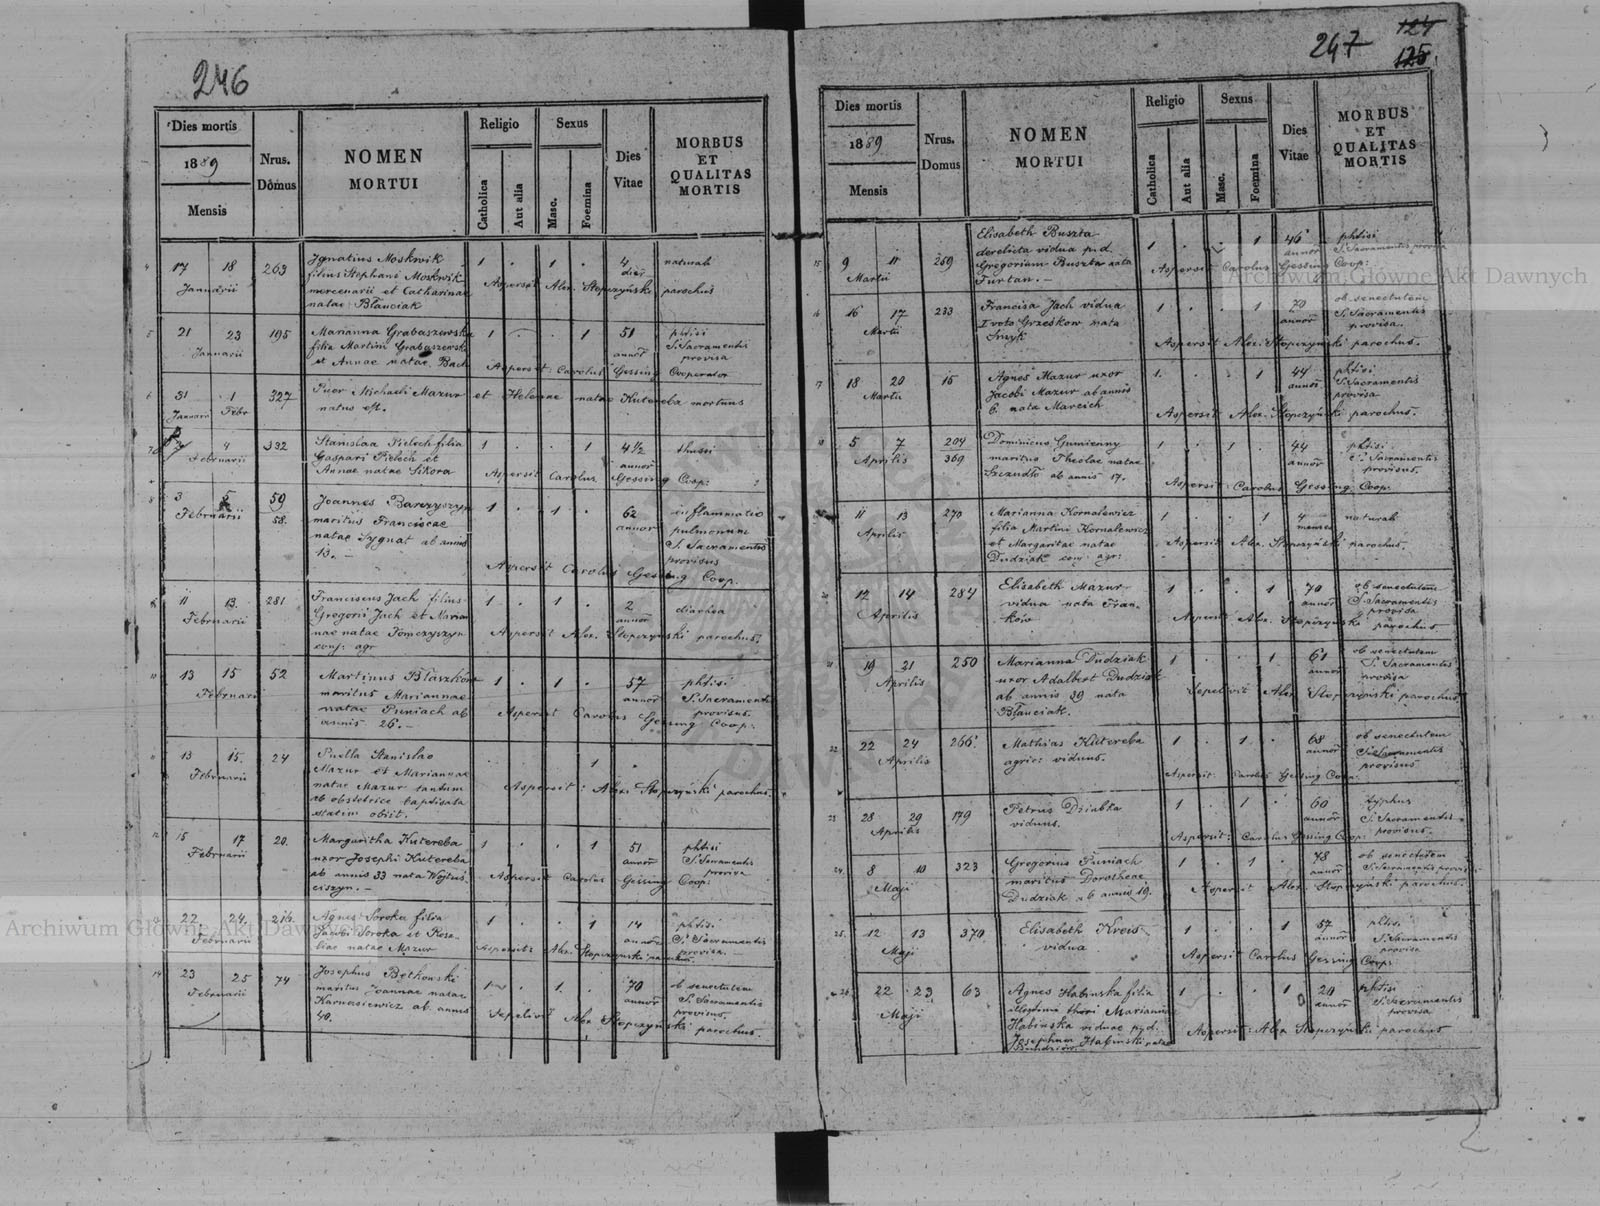 246
Dies mortis
1889
Mensis
Nrus.
Domus
NOMEN
MORTUI
Religio
Catholica
Aut alia
Sexus
Masc.
Foemina
Dies
Vitae
MORBUS
ET
QUALITAS
MORTIS
4 17 18 263 Ignatius Moskwik 1 . 1 . 4 naturali
Januarii filius Stephani Moskwik dies
mercenarii et Catharinae Aspersit Alex. Stopczyński parochus
natae Błanciak
5 21 23 195 Marianna Grabaszewska 1 1 51 phtisi
Januarii filia Martini Grabaszewski annor S. Sacramentis
et Annae natae provisa
Aspersit: Carolus Gessing Cooperator
6 31 1 327 Puer Michaeli Mazur et Helenae natae Kutereba mortuus
Januarii Febr natus est.
7 4 332 Stanislaa Pielech filia 1 . . 1 4 1/2 thussi
Februarii Gaspari Pielech et annor
Annae natae Sikora Aspersit Carolus Gessing Coop:
8 3 5 59 Joannes Barczyszyn 1 . 1 . 62 inflammatio
Februarii 58. maritus Franciscae annor pulmonum
natae Sygnat ab annis S. Sacramentis
13. provisus
Aspersit Carolus Gessing Coop.
11 13. 281 Franciscus Jach filius 1 . 1 . 2 diarhea
Februarii Gregorii Jach et Marian annor
nae natae Tomczyszyn Aspersit Alex. Stopczyński parochus.
conj: agr
10 13 15 52 Martinus Błaszków 1 . 1 . 57 phtisi
Februarii maritus Mariannae annor S. Sacramentis
natae Puniach ab provisus.
annis 26. Aspersit Carolus Gessing Coop.
13 15. 24 Puella Stanislao . . . 1
Februarii Mazur et Mariannae
natae Mazur tantum Aspersit: Alex: Stopczyński parochus.
ab obstetrice baptisata
statim obiit.
12 15 17 20. Margaritha Kutereba 1 . . 1 51 phtisi
Februarii uxor Josephi Kutereba annor S. Sacramentis
ab annis 33 nata Wojtus provisa
ciszyn. Aspersit Carolus Gessing Coop:
22 24. 216. Agnes Soroka filia 1 . . 1 14 phtisi.
Februarii Jacobi Soroka et Rosa- annor S. Sacramentis
liae natae Mazur provisa.
Aspersit: Alex. Stopczyński parochus.
14 23 25 74 Josephus Bętkowski 1 . 1. . 70 ob senectutem
Februarii maritus Joannae natae annor S. Sacramentis
Karnasiewicz ab annis provisus.
40. Sepelivit Alex Stopczyński parochus.
247
124
125
Dies mortis
1889
Mensis
Nrus.
Domus
NOMEN
MORTUI
Religio
Catholica
Aut alia
Sexus
Masc.
Foemina
Dies
Vitae
MORBUS
ET
QUALITAS
MORTIS
15 9 11 259 Elisabeth Buszta 1 . . 1 46 phtisi
Martii derelicta vidua p.d. annor S. Sacramentis provisa
Gregorium Buszta nata Aspersit Carolus Gessing Coop:
Furtan.
16 16 17 233 Francisa Jach vidua 1 . . 1 70 ob senectutem
Martii I voto Grześkow nata annor S. Sacramentis
Smyk provisa.
Aspersit Alex: Stopczyński parochus.
17 18 20 15 Agnes Mazur uxor 1. . . 1 44 phtisi
Martii Jacobi Mazur ab annis annor S. Sacramentis
6 nata Marcich provisa
Aspersit Alex. Stopczyński parochus.
18 5 7 204 Dominicus Gumienny 1 . 1 . 44 phtisi
Aprilis 369 maritus Theclae natae annor S. Sacramentis
Szczudło ab annis 17. provisus.
Aspersit: Carolus Gessing Coop.
11 13 270 Marianna Kornalewicz 1 . . 1 4 naturali
Aprilis filia Martini Kornalewicz menses
et Margaritae natae Aspersit Alex. Stopczyński parochus.
Dudziak conj: agr:
20 12 14 284 Elisabeth Mazur 1 . . 1 70 ob senectutem
Aprilis vidua nata Fran- annor S. Sacramentis
ków provisa
Aspersit Alex. Stopczyński parochus
21 19 21 250 Marianna Dudziak 1 . . 1 61 ob senectutem
Aprilis uxor Adalbert Dudziak annor S. Sacramentis
ab annis 39 nata provisa
Błanciak. Sepelivit Alex Stopczyński parochus
22 22 24 266. Mathias Kutereba 1 . 1 . 68 ob senectutem
Aprilis agric: viduus. annor S. Sacramentis
provisus
Aspersit: Carolus Gessing Coop:
23 28 29 179 Petrus Dziabka 1 . 1 . 60 typhus
Aprilis viduus. annor S. Sacramentis
provisus.
Aspersit: Carolus Gessing Coop:
24. 8 10 323 Gregorius Puniach 1 . 1 . 78 ob senectutem
Maji maritus Dorotheae annor S. Sacramentis provisus
Dudziak ab annis 19. Aspersit Alex. Stopczyński parochus.
25. 12 13 370 Elisabeth Kreis 1 . . 1 57 phtisi
Maji vidua annor S. Sacramentis
provisa
Aspersit Carolus Gessing Coop:
26 22 23 63 Agnes Habinska filia 1 . . 1 20 phtisi
Maji illegitimi thori Marianna annor S. Sacramentis
Habinska viduae p.d. provisa
Josephum Habinski natae Aspersit: Alex Stopczyński parochus
Archiwum Główne Akt Dawnych
Archiwum Główne Akt Dawnych